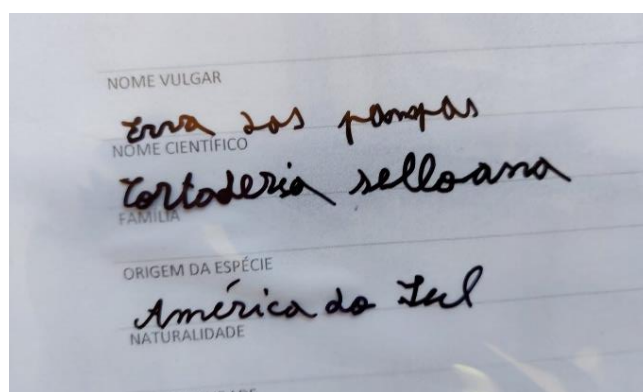 NOME VULGAR
Erva das pampas
NOME CIENTÍFICO
Cortaderia selloana
FAMÍLIA
ORIGEM DA ESPÉCIE
América do Sul
NATURALIDADE